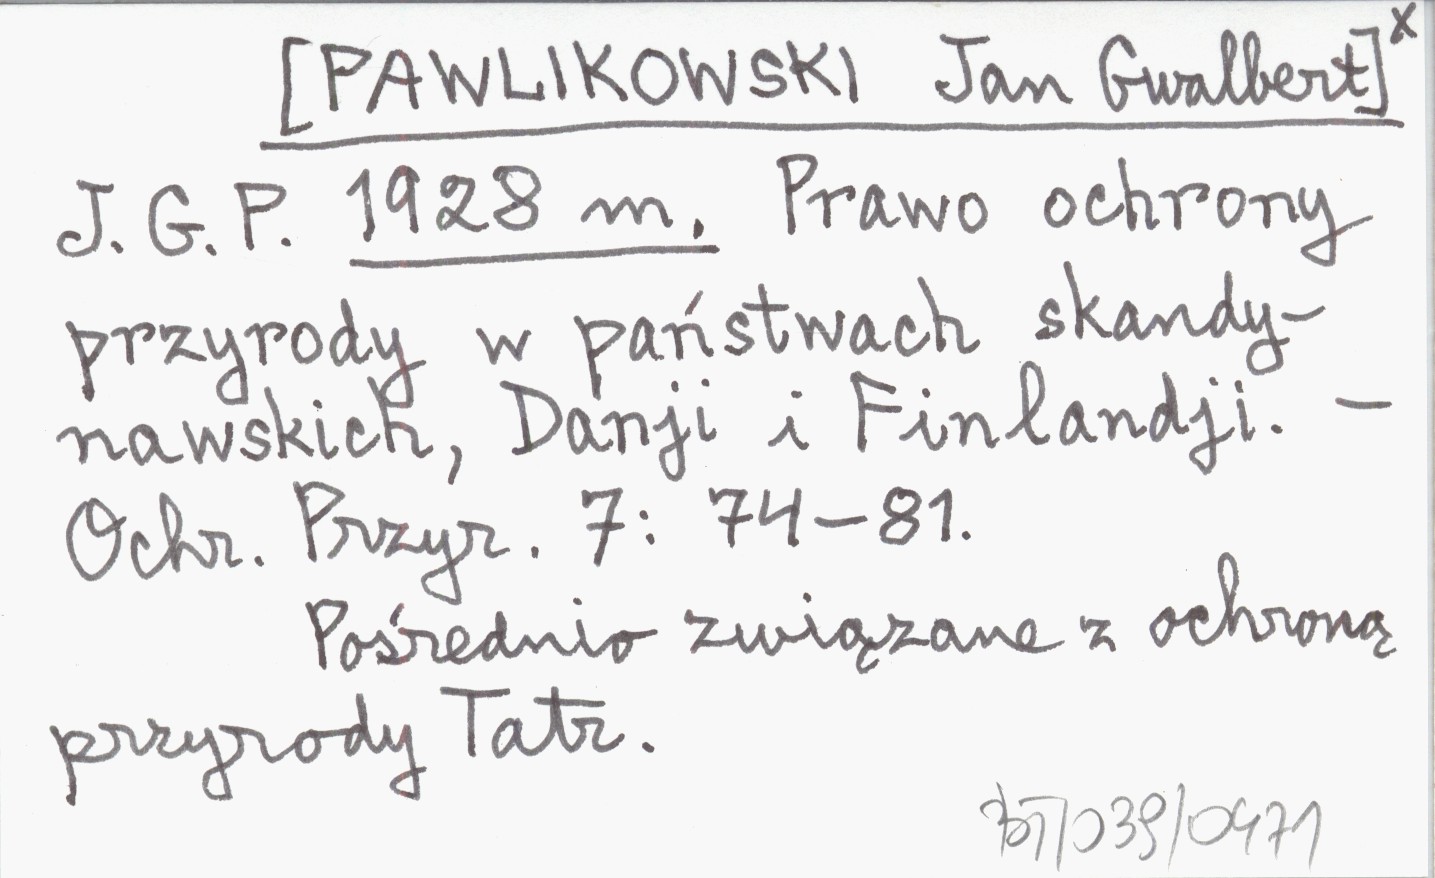 [PAWLIKOWSKI Jan Gwalbert]x
J. G. P. 1928 m. Prawo ochrony
przyrody w państwach skandy-
nawskich, Danji i Finlandji. —
Ochr. Przyr. 7: 74–81.
Pośrednio związane z ochroną
przyrody Tatr.
BT/039/0471